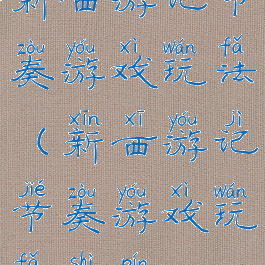 新西游记节
zòu yóu xì wán fǎ
奏游戏玩法
xīn xī yóu jì
(新西游记
jié zòu yóu xì wán
节奏游戏玩
fǎ shì pín